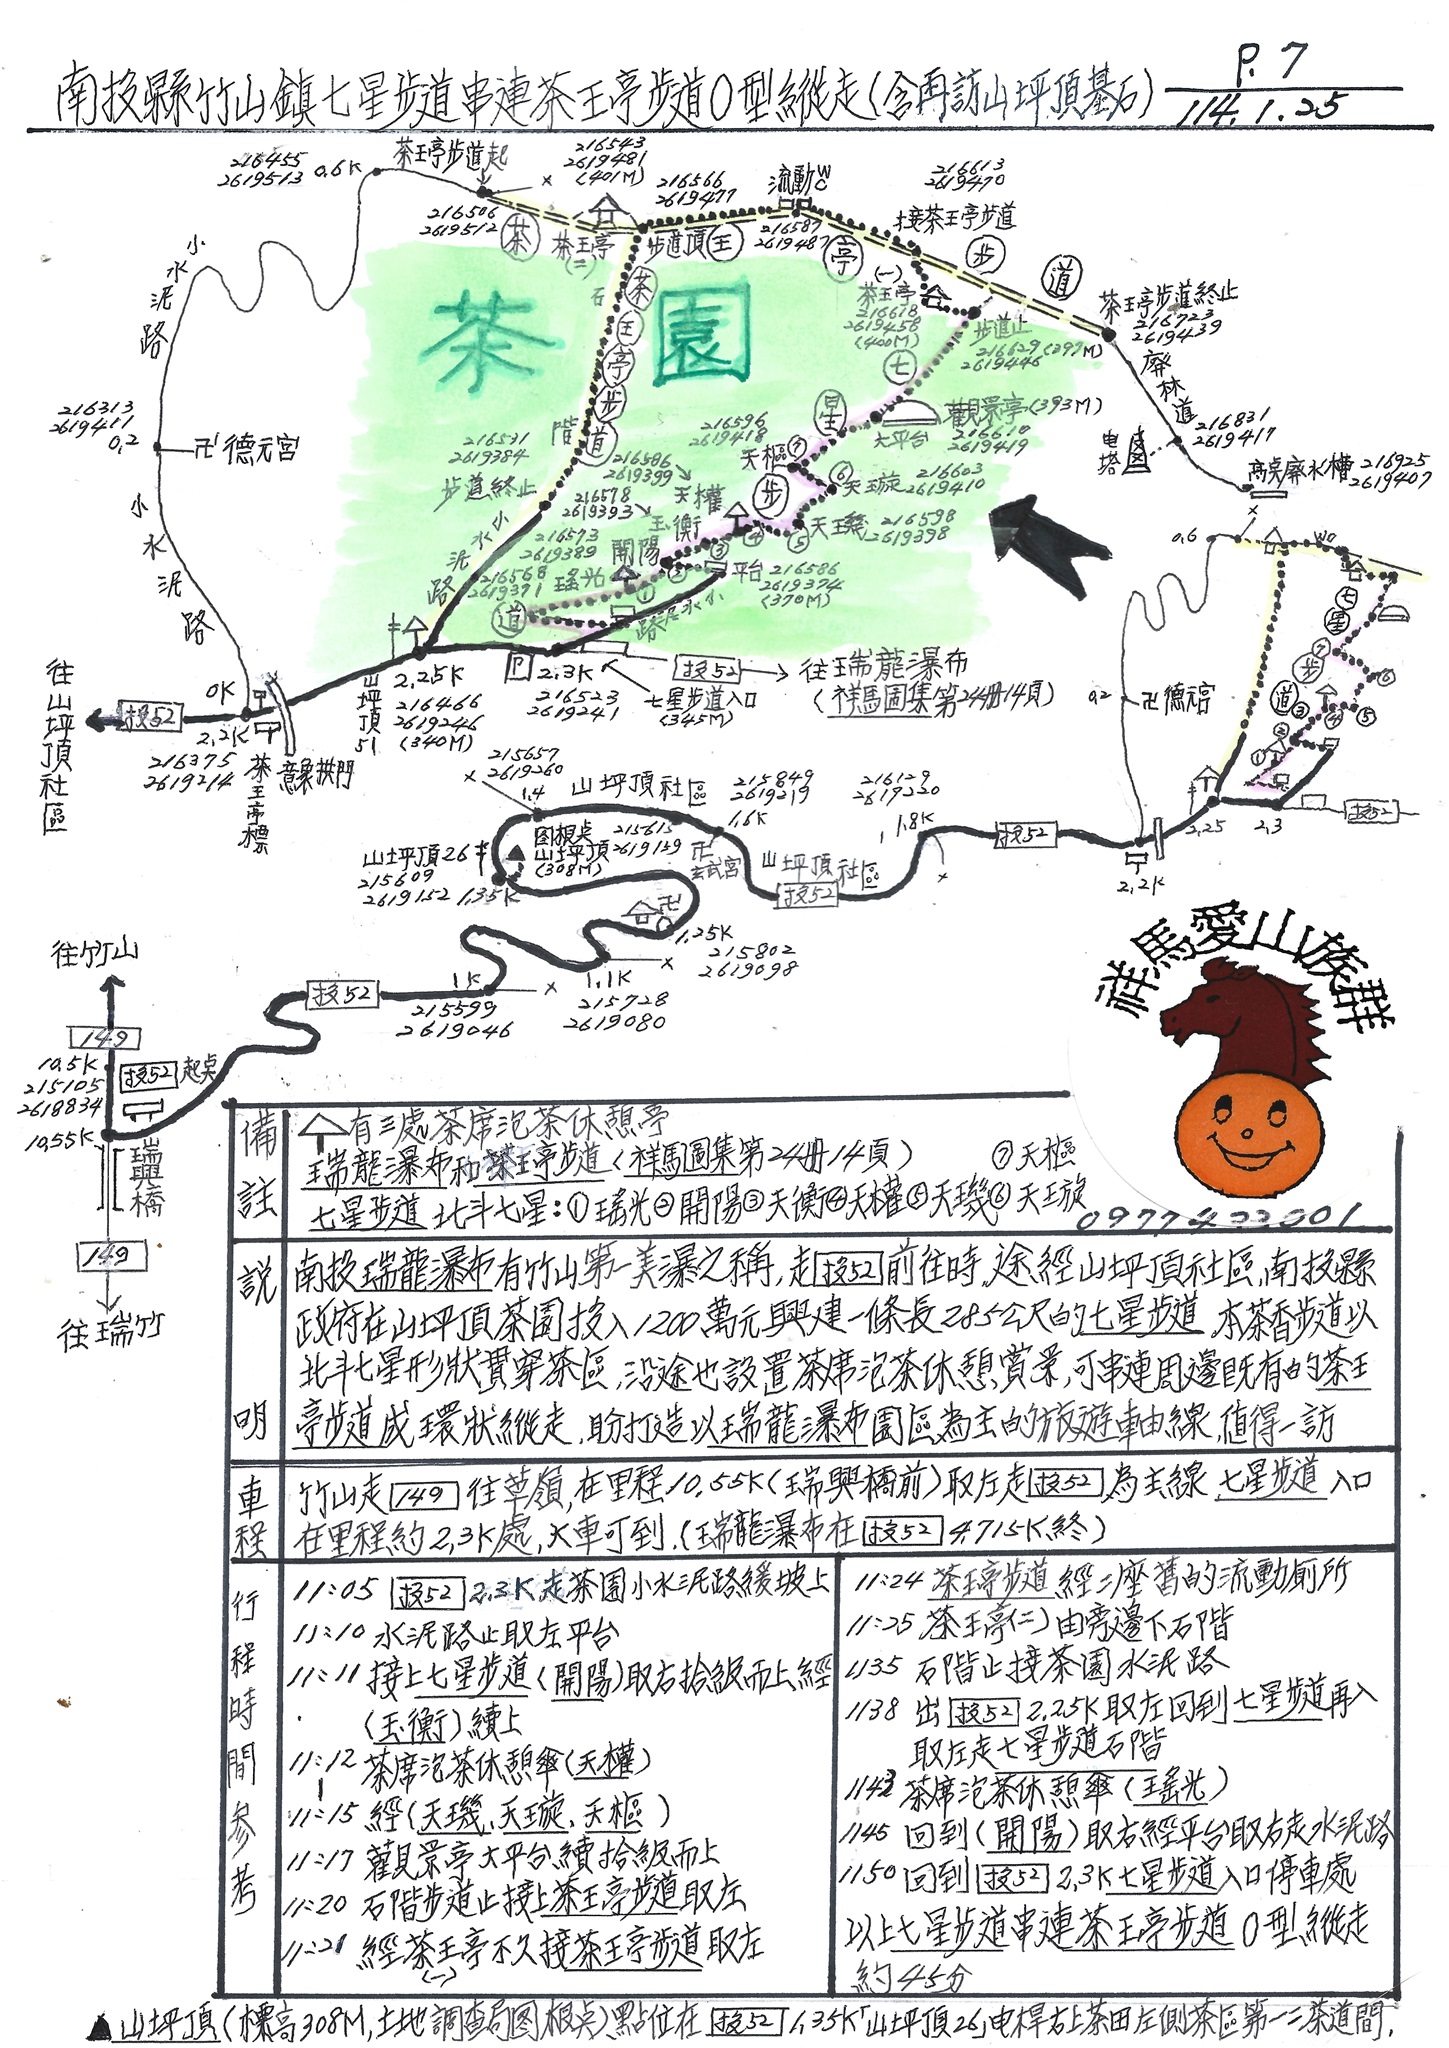 P.7
南投縣竹山鎮七星步道串連茶王亭步道O型縱走(含再訪山坪頂基石)
114.1.25
216455
2619513
0.6K
茶王亭步道起
216543
2619481
(401M)
216566
2619477
流動WC
216613
2619470
接茶王亭步道
216506
2619512
茶
茶王亭
(二)
步道頂
王
216587
2619487
亭
步
道
(一)
茶王亭
216618
2619458
(400M)
步道止
216629(397M)
2619446
茶王亭步道終止
216723
2619439
廢林道
216831
2619417
电塔
高桌廢水槽
216925
2619407
小水泥路
茶園
石階
茶王亭步道
七星步道
觀景亭(393M)
大平台
216610
2619419
216596
2619418
天樞
⑦
⑥
天璇
216603
2619410
216313
2619411
0.2
卍德元宮
216531
2619384
步道終止
216586
2619399
天權
216578
2619393
玉衡
④
⑤
天璣
216598
2619398
216573
2619389
開陽
③
②
216568
2619371
瑤光
①
平台
216586
2619374
(370M)
小水泥路
小水泥路
小水泥路
往山坪頂社區
投52
0K
2.2K
216375
2619214
茶王亭標
意象拱門
山坪頂51
2.25K
216466
2619246
(340M)
P
2.3K
216523
2619241
七星步道入口
(345M)
投52
往瑞龍瀑布
(祥馬圖集第24冊14頁)
0.6
WC
七星步道
⑦
⑥
⑤
④
③
②
①
0.2
卍德宮
2.25
2.3
投52
2.2K
215657
2619260
1.4
山坪頂社區
215849
2619219
1.6K
1.8K
投52
山坪頂26
215609
2619152
1.35K
图根点
山坪頂
(308M)
215615
2619159
卍
玄武宮
山坪頂社區
投52
卍
1.25K
215802
2619098
往竹山
149
10.5K
215105
2618834
投52
起点
10.55K
瑞興橋
149
往瑞竹
投52
1K
215599
2619046
1.1K
215728
2619080
祥馬愛山族群
備註
有三處茶席泡茶休憩亭
瑞龍瀑布和茶王亭步道(祥馬圖集第24冊14頁) ⑦天樞
七星步道北斗七星:①瑤光②開陽③天衡④天權⑤天璣⑥天璇
說明
南投瑞龍瀑布有竹山第一美瀑之稱,走投52前往時,途經山坪頂社區,南投縣
政府在山坪頂茶園投入1200萬元興建一條長285公尺的七星步道,本茶香步道以
北斗七星形狀貫穿茶區,沿途也設置茶席泡茶休憩賞景,可串連周邊既有的茶王
亭步道成環狀縱走,盼打造以瑞龍瀑布園區為主的旅遊軸線,值得一訪
車程
竹山走149往草嶺,在里程10.55K(瑞興橋前)取左走投52為主線,七星步道入口
在里程約2.3K處,大車可到.(瑞龍瀑布在投52 4.715K終)
行程時間參考
11:05 投52 2.3K走茶園小水泥路緩坡上
11:10 水泥路止取左平台
11:11 接上七星步道(開陽)取右拾級而上,經
(玉衡)續上
11:12 茶席泡茶休憩傘(天權)
11:15 經(天璣、天璇、天樞)
11:17 觀景亭大平台續拾級而上
11:20 石階步道止接上茶王亭步道取左
11:21 經茶王亭(一)不久接茶王亭步道取左
11:24 茶王亭步道經二座舊的流動廁所
11:25 茶王亭(二)由旁邊下石階
1135 石階止接茶園水泥路
1138 出投52 2.25K取左回到七星步道再入
取左走七星步道石階
1143 茶席泡茶休憩傘(瑤光)
1145 回到(開陽)取右經平台取右走水泥路
1150 回到投52 2.3K七星步道入口停車處
以上七星步道串連茶王亭步道O型縱走
約45分
▲山坪頂(標高308M,土地調查局图根点)點位在投52 1.35K「山坪頂26」电桿右上茶田左側茶區第一二茶道間.